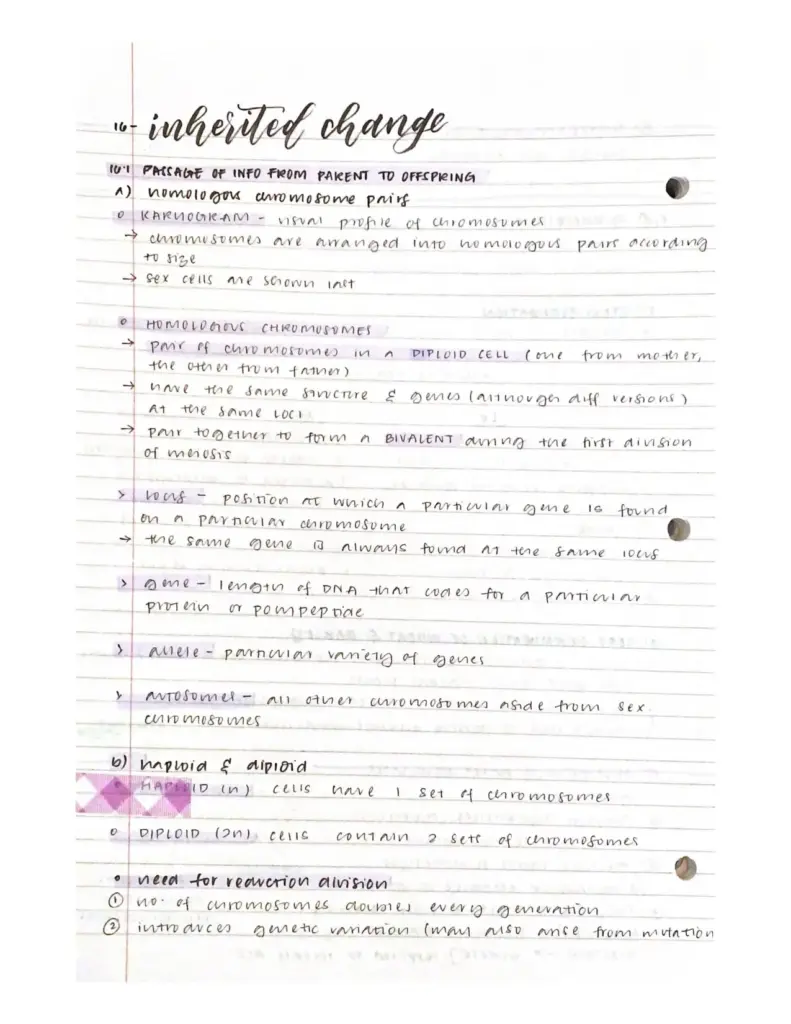 16- inherited change
16.1 PASSAGE OF INFO FROM PARENT TO OFFSPRING
a) homologous chromosome pairs
o KARYOGRAM - visual profile of chromosomes
→ chromosomes are arranged into homologous pairs according
to size
→ sex cells are shown last
o HOMOLOGOUS CHROMOSOMES
→ pair of chromosomes in a DIPLOID CELL (one from mother,
the other from father)
→ have the same structure & genes (although diff versions)
at the same loci
→ pair together to form a BIVALENT during the first division
of meiosis
> locus - position at which a particular gene is found
on a particular chromosome
→ the same gene is always found at the same locus
> gene - length of DNA that codes for a particular
protein or polypeptide
> allele - particular variety of genes
> autosomes - all other chromosomes aside from sex
chromosomes
b) haploid & diploid
• HAPLOID (n) cells have 1 set of chromosomes
o DIPLOID (2n) cells contain 2 sets of chromosomes
• need for reduction division
① no. of chromosomes doubles every generation
② introduces genetic variation (may also arise from mutation